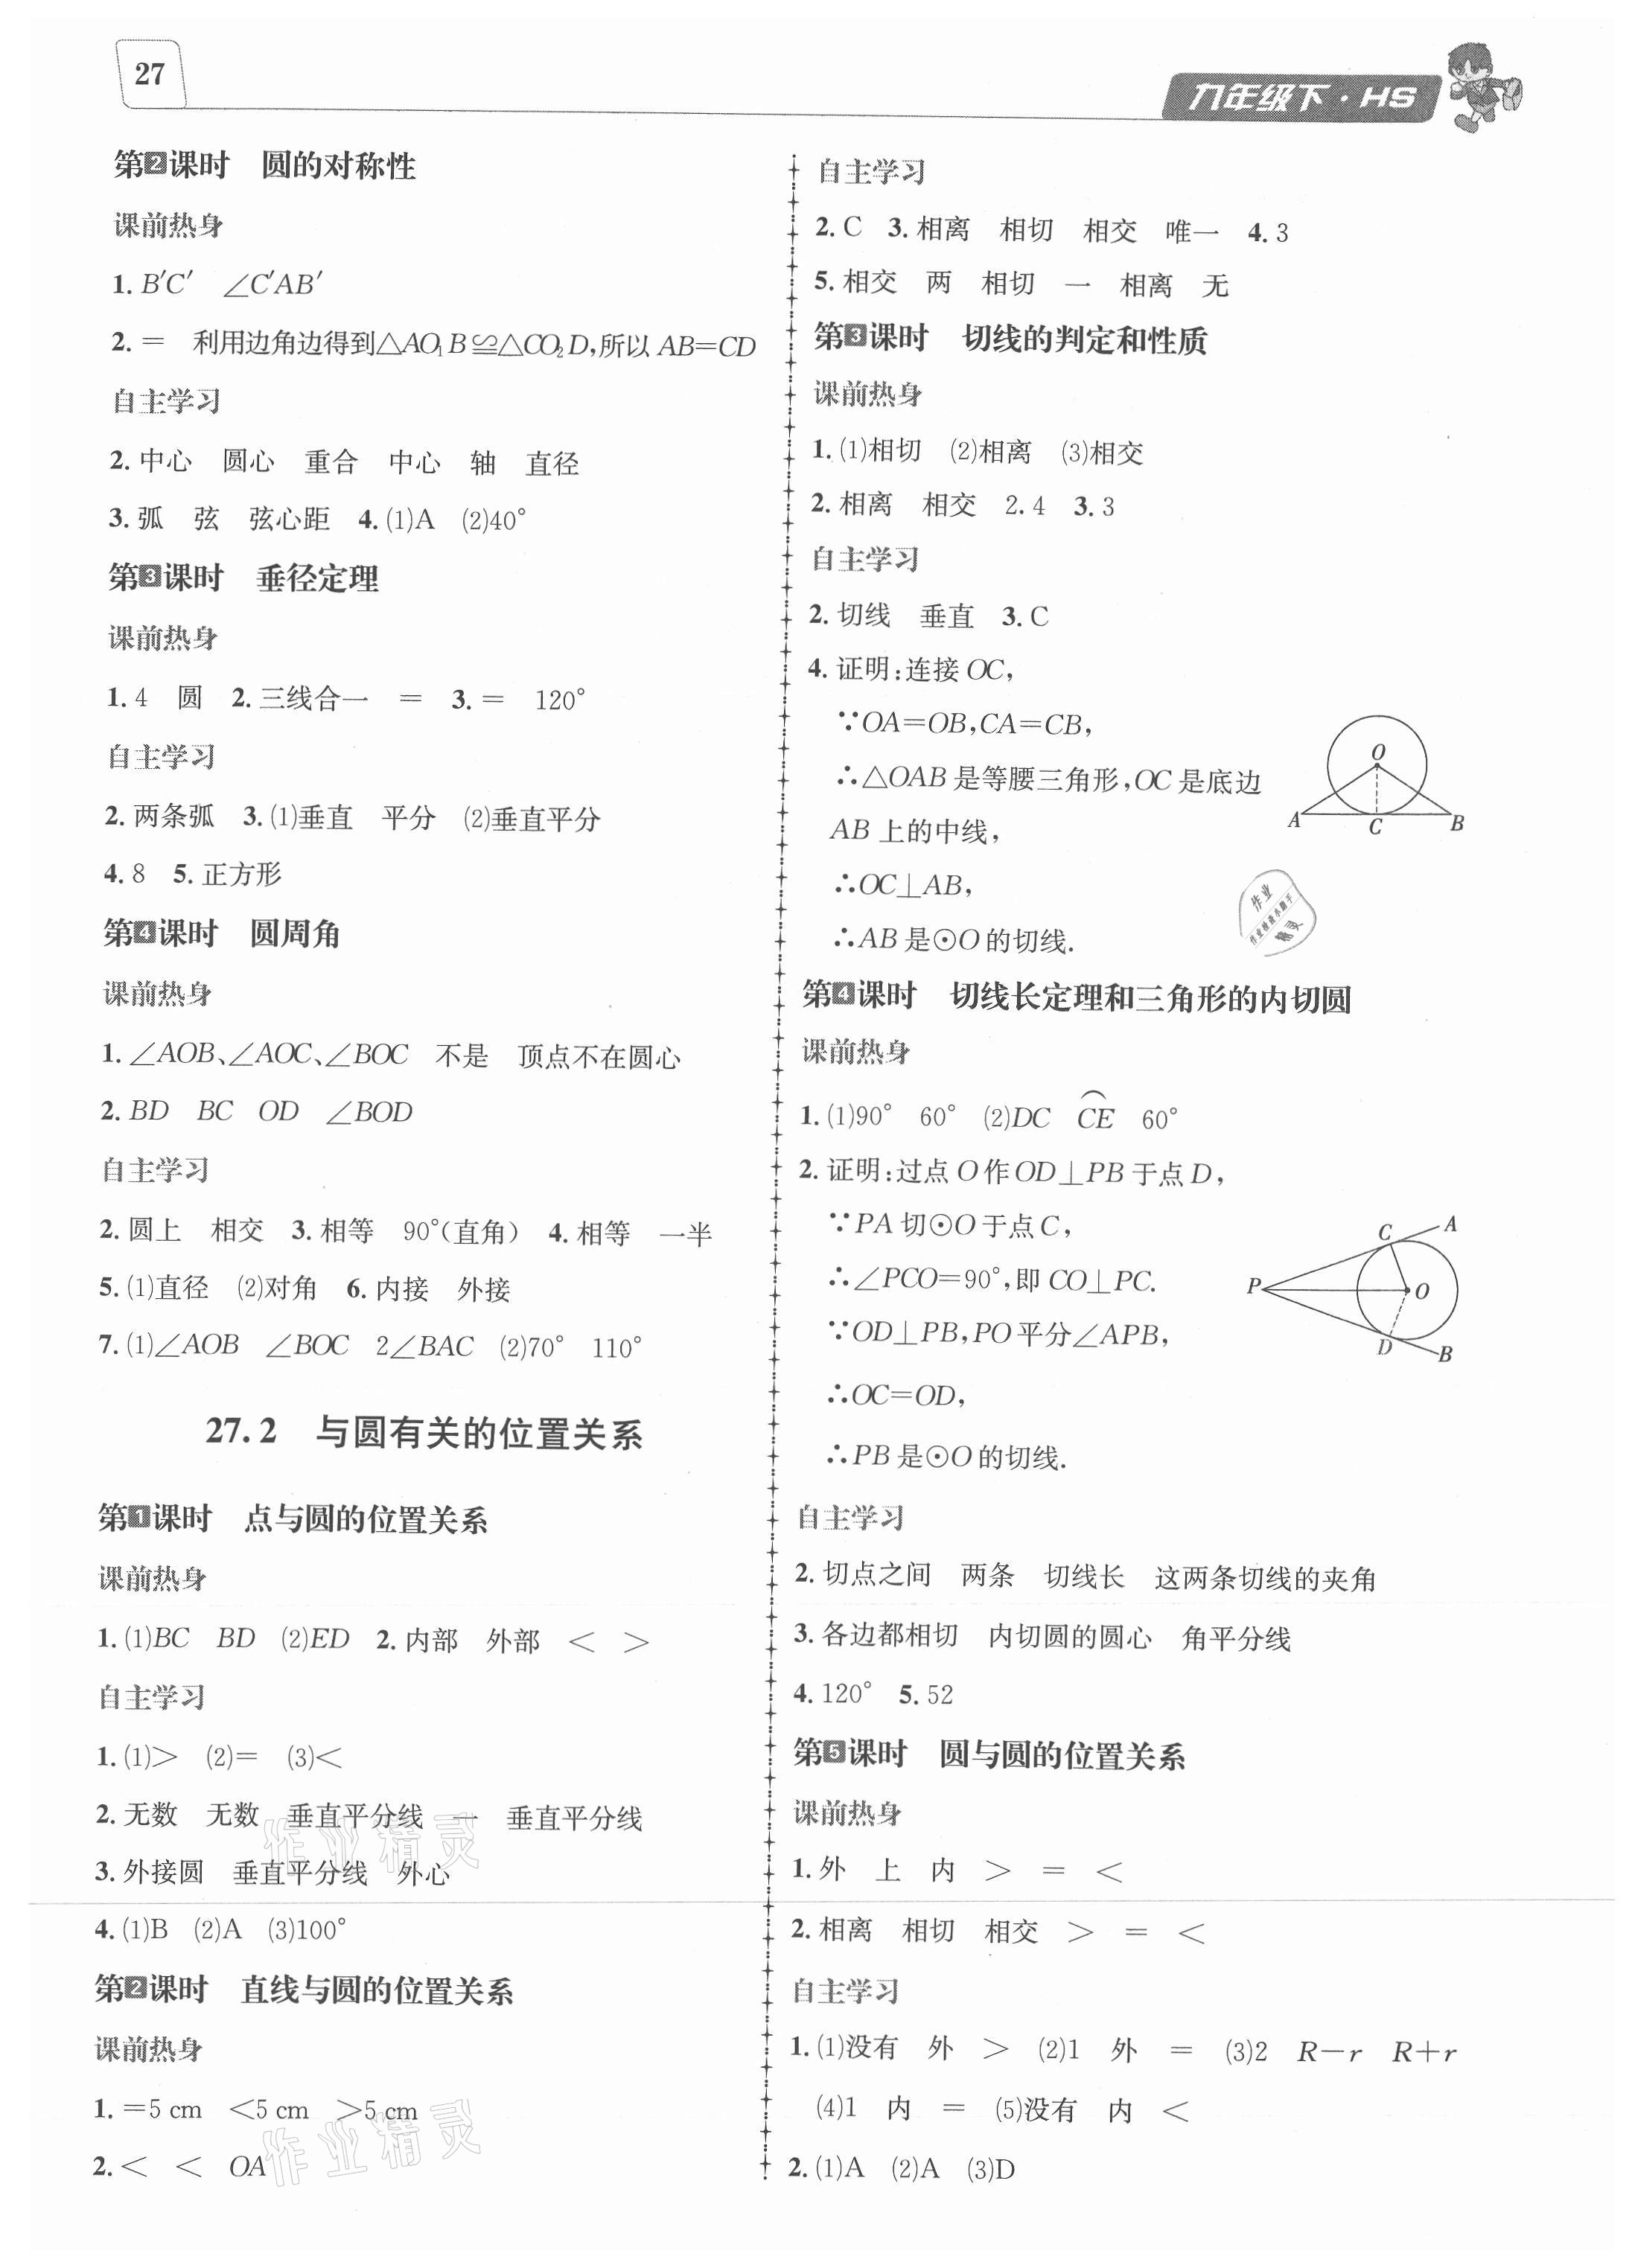 27
九年级下·HS
第2课时 圆的对称性
课前热身
1. B′C′ ∠C′AB′
2. = 利用边角边得到△AO₁B≌△CO₂D,所以 AB=CD
自主学习
2. 中心 圆心 重合 中心 轴 直径
3. 弧 弦 弦心距 4. (1)A (2)40°
第3课时 垂径定理
课前热身
1. 4 圆 2. 三线合一 = 3. = 120°
自主学习
2. 两条弧 3. (1)垂直 平分 (2)垂直平分
4. 8 5. 正方形
第4课时 圆周角
课前热身
1. ∠AOB、∠AOC、∠BOC 不是 顶点不在圆心
2. BD BC OD ∠BOD
自主学习
2. 圆上 相交 3. 相等 90°(直角) 4. 相等 一半
5. (1)直径 (2)对角 6. 内接 外接
7. (1)∠AOB ∠BOC 2∠BAC (2)70° 110°
27.2 与圆有关的位置关系
第1课时 点与圆的位置关系
课前热身
1. (1)BC BD (2)ED 2. 内部 外部 < >
自主学习
1. (1)> (2)= (3)<
2. 无数 无数 垂直平分线 一 垂直平分线
3. 外接圆 垂直平分线 外心
4. (1)B (2)A (3)100°
第2课时 直线与圆的位置关系
课前热身
1. =5 cm <5 cm >5 cm
2. < < OA
自主学习
2. C 3. 相离 相切 相交 唯一 4. 3
5. 相交 两 相切 一 相离 无
第3课时 切线的判定和性质
课前热身
1. (1)相切 (2)相离 (3)相交
2. 相离 相交 2.4 3. 3
自主学习
2. 切线 垂直 3. C
4. 证明:连接 OC,
∵OA=OB,CA=CB,
∴△OAB 是等腰三角形,OC 是底边
AB 上的中线,
∴OC⊥AB,
∴AB 是⊙O 的切线.
O
A C B
作业
作业检查小助手
精灵
第4课时 切线长定理和三角形的内切圆
课前热身
1. (1)90° 60° (2)DC C͡E 60°
2. 证明:过点 O 作 OD⊥PB 于点 D,
∵PA 切⊙O 于点 C,
∴∠PCO=90°,即 CO⊥PC.
∵OD⊥PB,PO 平分∠APB,
∴OC=OD,
∴PB 是⊙O 的切线.
C A
P O
D B
自主学习
2. 切点之间 两条 切线长 这两条切线的夹角
3. 各边都相切 内切圆的圆心 角平分线
4. 120° 5. 52
第5课时 圆与圆的位置关系
课前热身
1. 外 上 内 > = <
2. 相离 相切 相交 > = <
自主学习
1. (1)没有 外 > (2)1 外 = (3)2 R−r R+r
(4)1 内 = (5)没有 内 <
2. (1)A (2)A (3)D
作业精灵
作业精灵